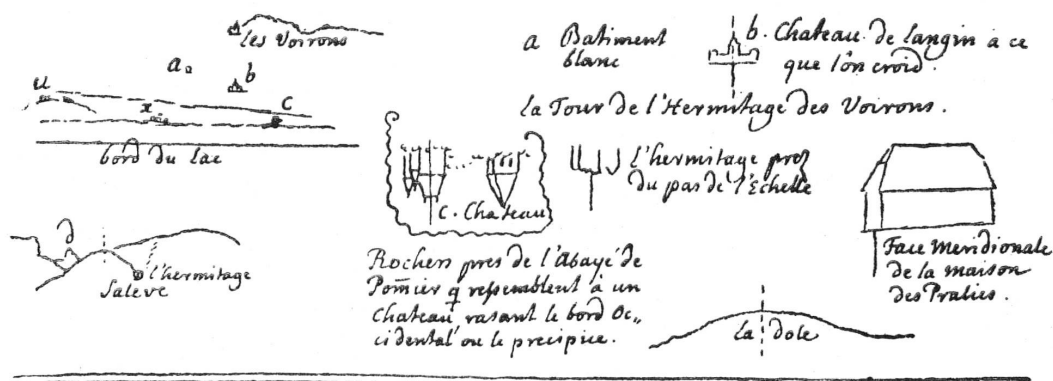 les Voirons
a
b
u
x
C
bord du lac
a Batiment
blanc
b. Chateau de langin à ce
que l'on croid.
la Tour de l'Hermitage des Voirons.
C. Chateau
l'hermitage prez
du pas de l'Echelle
d
l'hermitage
Saleve
Rochers pres de l'abayé de
Pom̃ier q̃ ressemblent à un
Chateau rasant le bord Oc„
cidental ou le precipice.
Face Meridionale
de la maison
des Pralies.
la dole